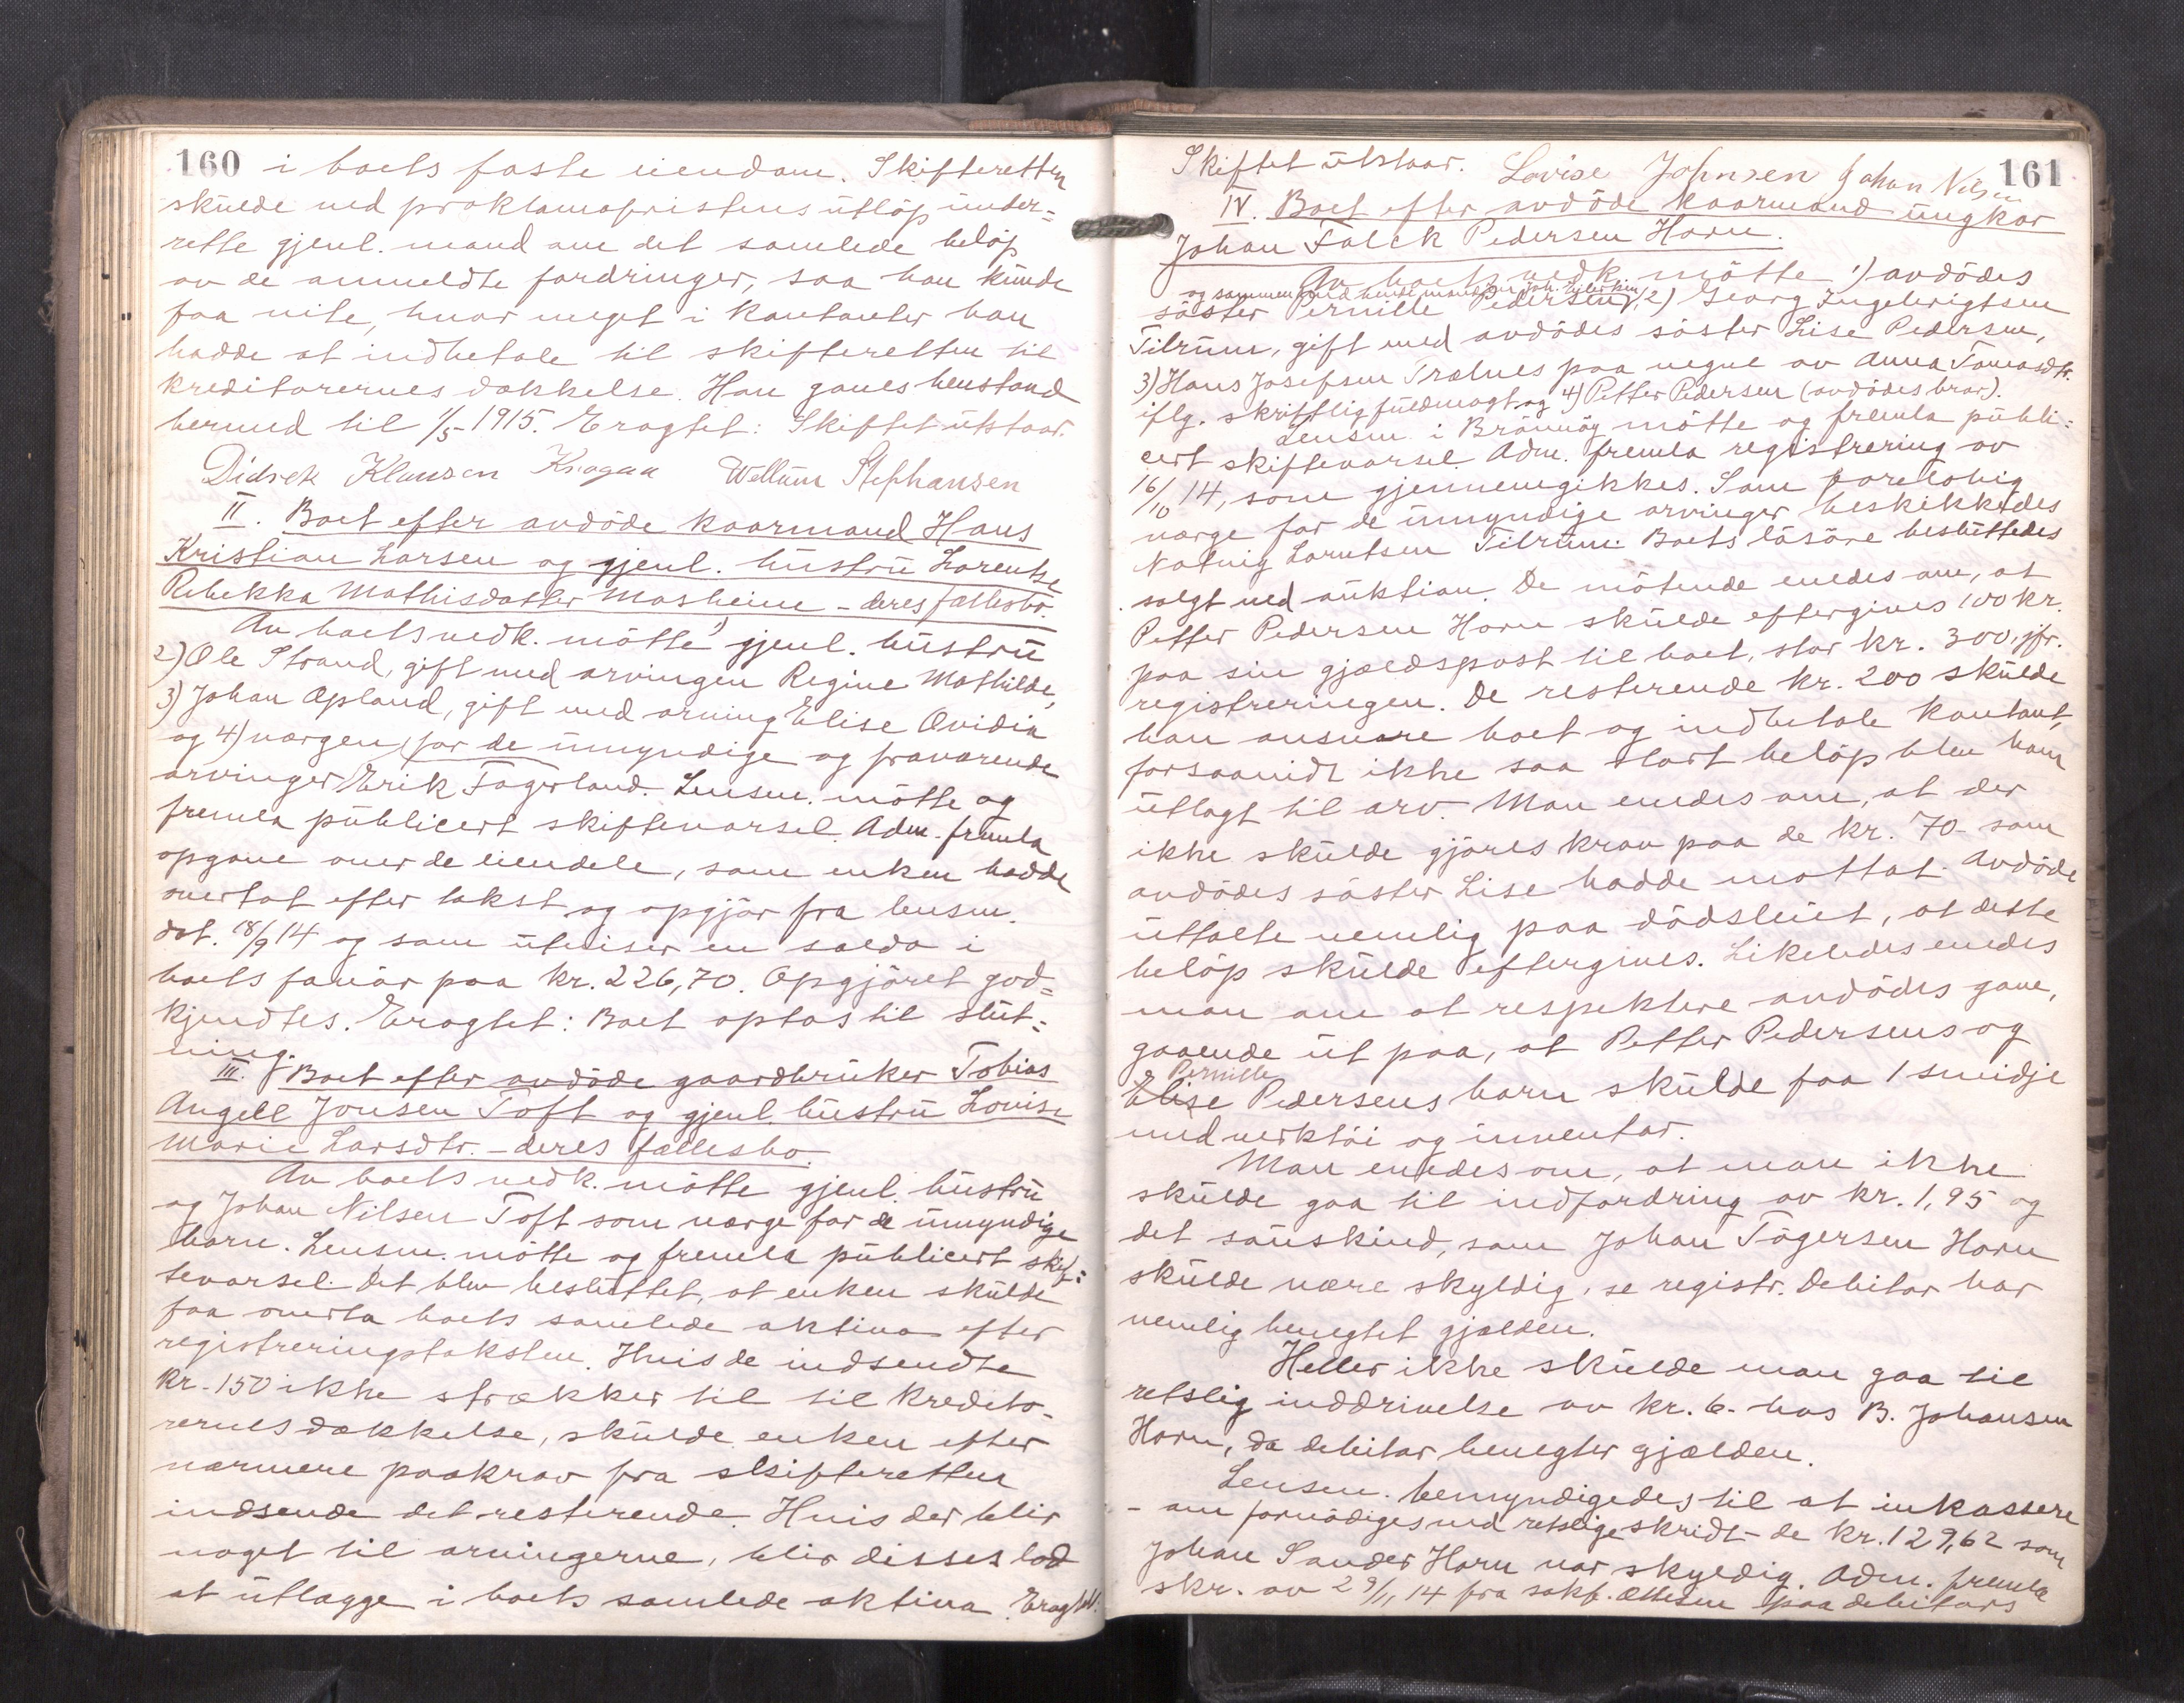 160 i boets faste eiendom. Skifteretten
skulde ved proklamafristens utløp under=
rette gjenl. mand om det samlede beløp
av de anmeldte fordringer, saa han kunde
faa vite, hvor meget i kontanter han
hadde at indbetale til skifteretten til
kreditorernes dækkelse. Han gaves henstand
hermed til 1/5 1915. Eragtet: Skiftet utstaar.
Didrek Klausen Krogaa Wellum Stephansen
II. Boet efter avdøde kaarmand Hans
Kristian Larsen og gjenl. hustru Lorentse
Rebekka Mathisdatter Mosheim - deres fællesbo.
Av boets vedk. møtte 1) gjenl. hustru
2) Ole Strand, gift med arvingen Regine Mathilde,
3) Johan Opland, gift med arving Elise Ovidia
og 4) værgen for de umyndige og fraværende
arvinger Erik Fagerland. Lensm. møtte og
fremla publicert skiftevarsel. Adm. fremla
opgave over de eiendele, som enken hadde
overtat efter takst og opgjør fra lensm.
dat. 18/9 14 og som utviser en saldo i
boets favør paa kr. 226,70. Opgjøret god=
kjendtes. Eragtet: Boet optas til slut=
ning.
III. Boet efter avdøde gaardbruker Tobias
Angell Jonsen Toft og gjenl. hustru Lovise
Marie Larsdtr. - deres fællesbo.
Av boets vedk. møtte gjenl. hustru
og Johan Nilsen Toft som værge for de umyndige
børn. Lensm. møtte og fremla publicert skif=
tevarsel. Det blev besluttet, at enken skulde
faa overta boets samlede aktiva efter
registreringstaksten. Hvis de indsendte
kr. 150 ikke strækker til til kredito-
rernes dækkelse, skulde enken efter
nærmere paakrav fra skifteretten
indsende det resterende. Hvis der blir
noget til arvingerne, blir disses lod
at utlægge i boets samlede aktiva. Eragtet:
161
Skiftet utstaar. Lovise Johnsen Johan Nilsen
IV. Boet efter avdøde kaarmand ungkar
Johan Falck Pedersen Horn.
Av boets vedk. møtte 1) avdødes
og sammen med hende mand
søster Pernille Pedersen, 2) Georg Ingebrigtsen
Tilrum, gift med avdødes søster Lise Pedersen,
3) Hans Josefsen Trælnes paa vegne av Anna Tomasdtr.
iflg. skriftlig fuldmagt og 4) Petter Pedersen (avdødes bror).
Lensm. i Brønnøy møtte og fremla publi=
cert skiftevarsel. Adm. fremla registrering av
16/10 14, som gjennemgikkes. Som foreløbig
værge for de umyndige arvinger beskikkedes
Notvig Lorntsen Tilrum. Boets løsøre besluttedes
solgt ved auktion. De møtende enedes om, at
Petter Pedersen Horn skulde eftergives 100 kr.
paa sin gjældspost til boet, stor kr. 300, jfr.
registreringen. De resterende kr. 200 skulde
han ansvare boet og indbetale kontant,
forsaavidt ikke saa stort beløp blev ham
utlagt til arv. Man enedes om, at der
ikke skulde gjøres krav paa de kr. 70- som
avdødes søster Lise hadde mottat. Avdøde
uttalte nemlig paa dødsleiet, at dette
beløp skulde eftergives. Likeledes enedes
man om at respektere avdødes gave,
gaaende ut paa, at Petter Pedersens og
Pernille
Elise Pedersens barn skulde faa 1 smidje
med verktøi og inventar.
Man enedes om, at man ikke
skulde gaa til indfordring av kr. 1,95 og
det sauskind, som Johan Tøgersen Horn
skulde være skyldig, se registr. Debitor har
nemlig benegtet gjælden.
Heller ikke skulde man gaa til
retslig inddrivelse av kr. 6- hos B. Johansen
Horn, da debitor benegter gjælden.
Lensm. bemyndigedes til at inkassere
- om fornødiges ved retslige skridt - de kr. 129,62 som
Johan Sander Horn var skyldig. Adm. fremla
skr. av 29/11 14 fra sakf. Ellesen paa debitors